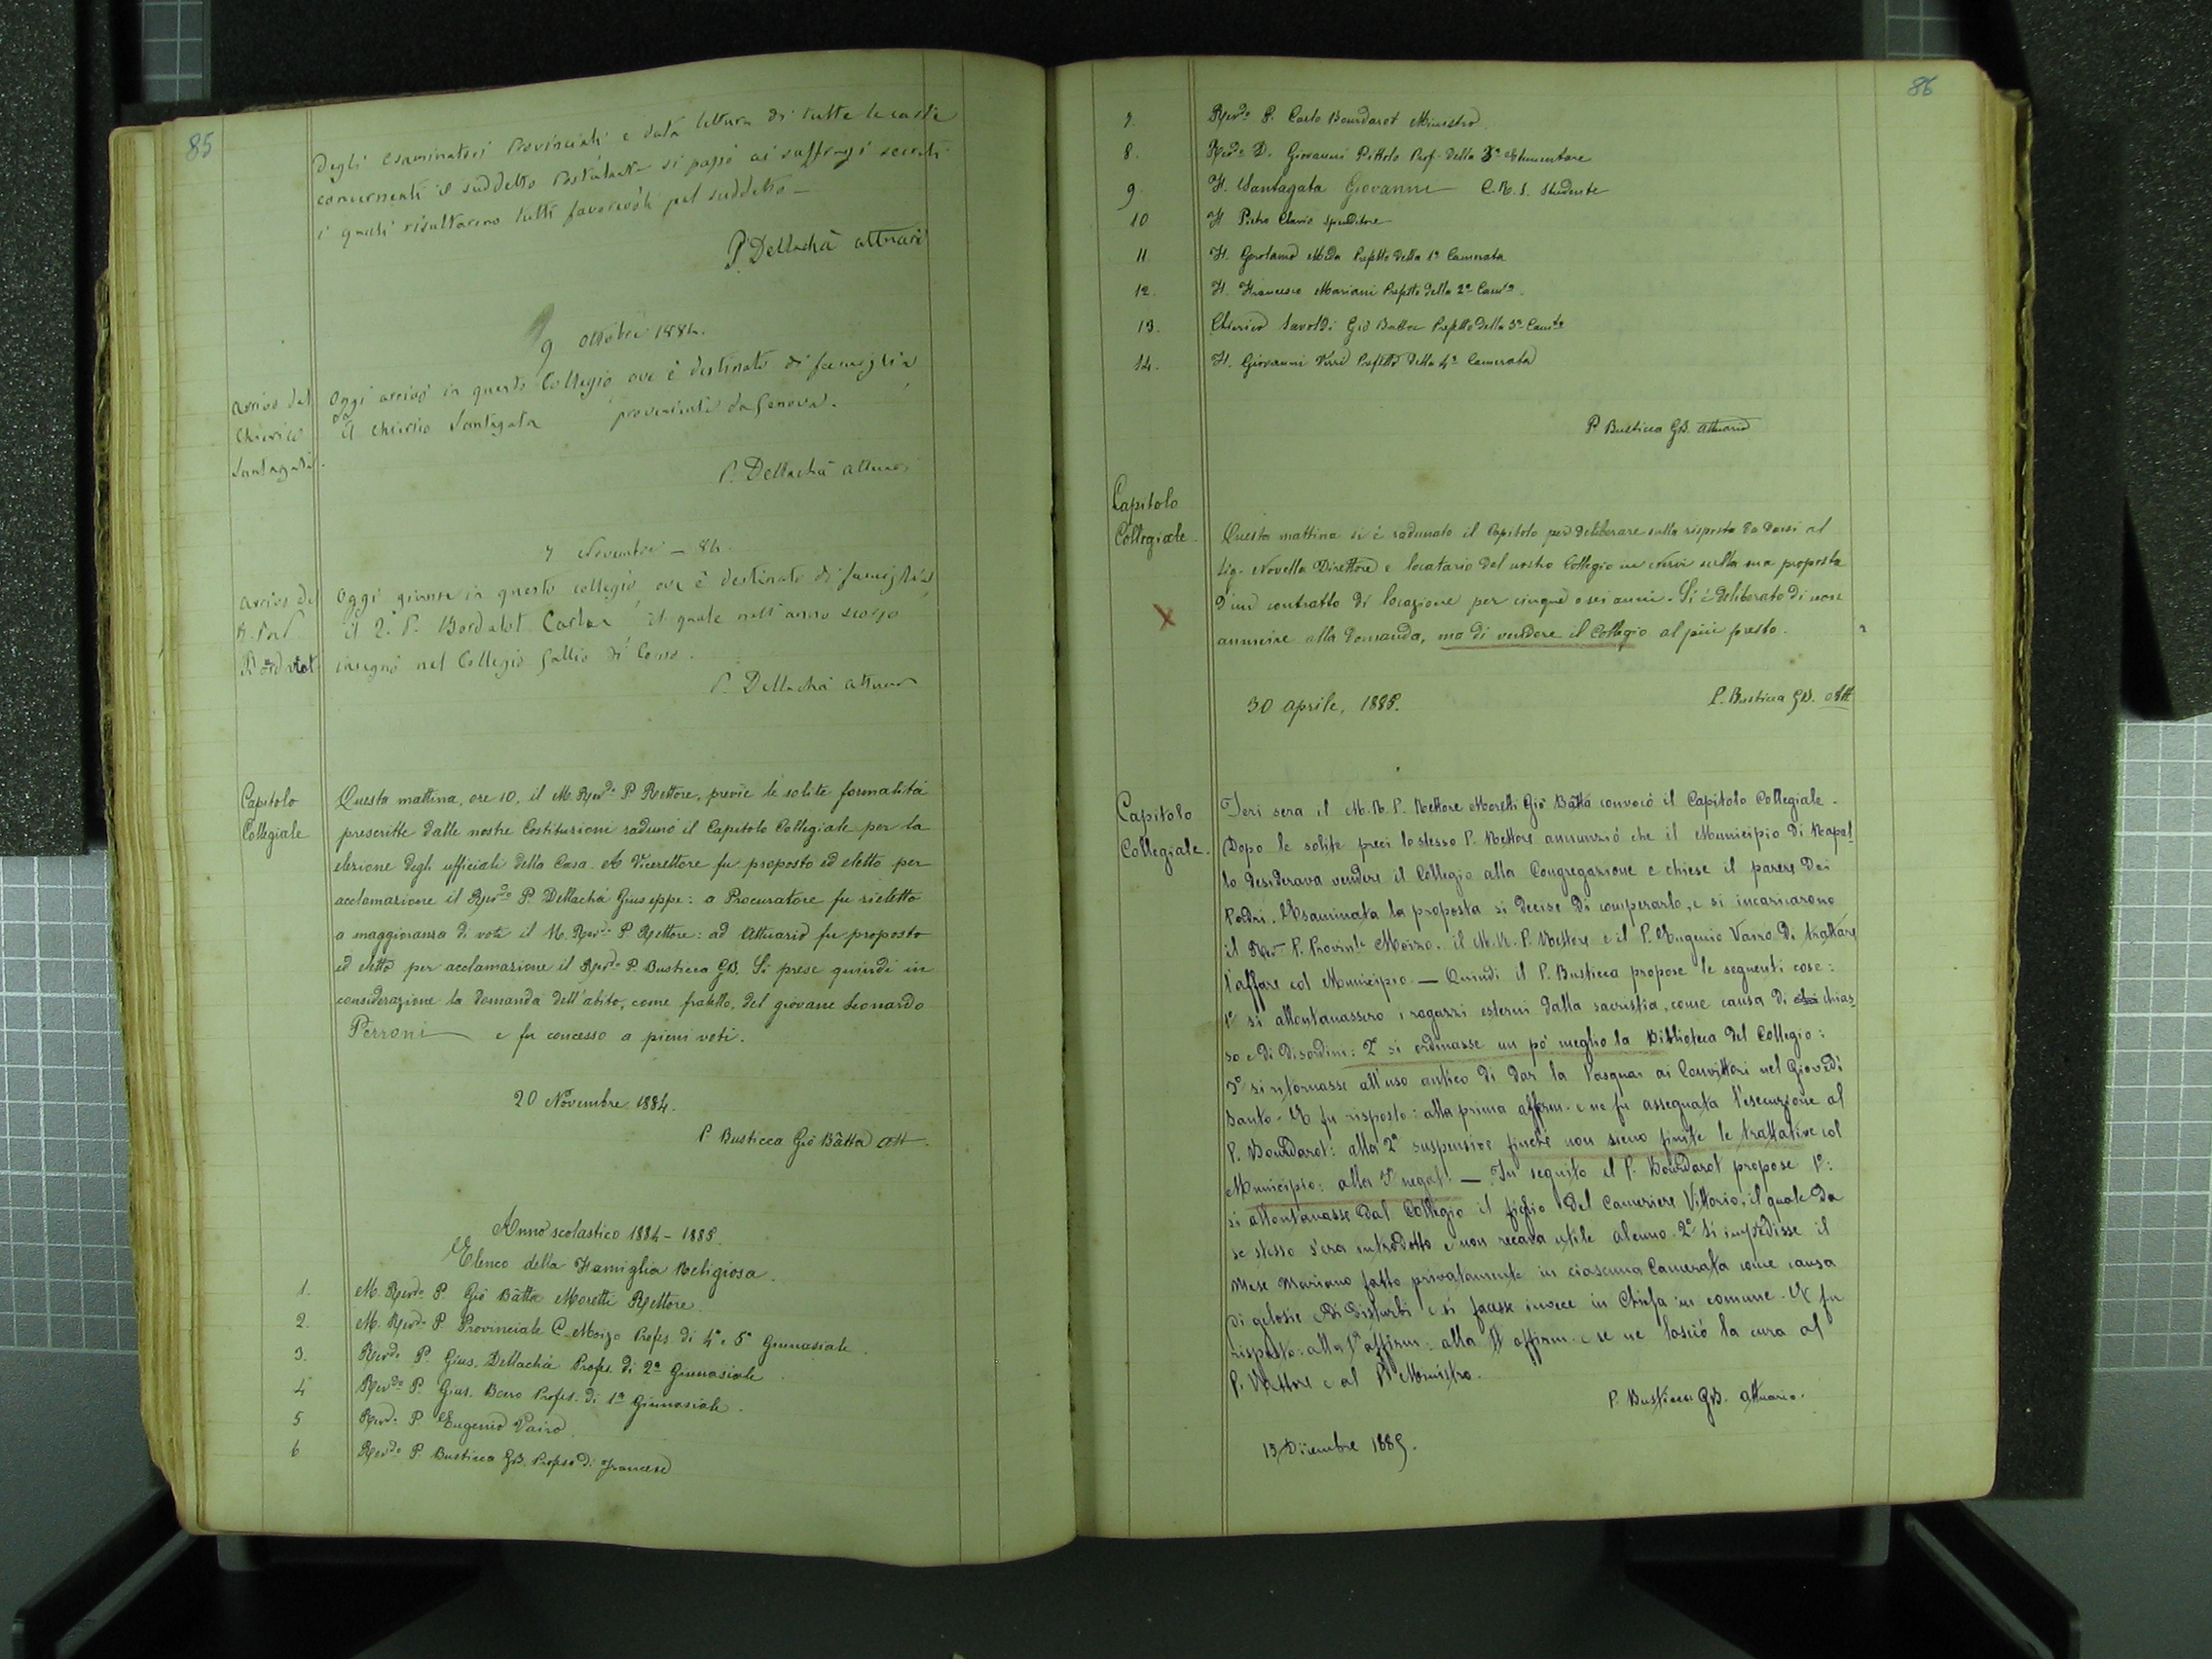 85
degli esaminatori Provinciali e data lettura di tutte le carte
concernenti il suddetto Postulante si passò ai suffragi secreti
i quali risultarono tutti favorevoli pel suddetto —
P. Dellachà attuario
9 Ottobre 1884.
Arrivo del
Chierico
Santagata.
Oggi arrivò in questo Collegio ove è destinato di famiglia
il chierico Santagata proveniente da Genova.
P. Dellachà attuario
7 Novembre — 84
Arrivo del
R. Pad.
Bordarot
Oggi giunse in questo collegio, ove è destinato di famiglia
il R. P. Bordalot Carlo il quale nell'anno scorso
insegnò nel Collegio Gallio di Como.
P. Dellachà attuario
Capitolo
Collegiale
Questa mattina, ore 10, il M. Revdo P Rettore, previe le solite formalità
prescritte dalle nostre Costituzioni radunò il Capitolo Collegiale per la
elezione degli ufficiali della Casa. A Vicerettore fu proposto ed eletto per
acclamazione il Revdo P. Dellachà Giuseppe: a Procuratore fu rieletto
a maggioranza di voti il M. Revdo P Rettore: ad Attuario fu proposto
ed eletto per acclamazione il Revdo P. Busticca GB. Si prese quindi in
considerazione la domanda dell'abito, come fratello, del giovane Leonardo
Perroni e fu concesso a pieni voti.
20 Novembre 1884.
P. Busticca Gio Bâtta Att.
Anno scolastico 1884 - 1885.
Elenco della Famiglia Religiosa.
1. M. Revdo P. Gio Bâtta Moretti Rettore.
2. M. Revdo P. Provinciale C. Moizo Profes. di 4a e 5a Ginnasiale.
3. Revdo P. Gius. Dellachà Profes. di 2a Ginnasiale.
4 Revdo P. Gius. Boero Profes. di 1a Ginnasiale.
5 Revdo P. Eugenio Vairo.
6 Revdo P. Busticca GB. Profes. di francese
86
7. Revdo P. Carlo Bourdarot Ministro.
8. Revdo D. Giovanni Pittolo Prof. della 3a Elementare
9. F. Santagata Giovanni C.R.S. Studente
10 F. Pietro Clavio Spenditore
11 F. Gerolamo Meda Prefetto della 1a Camerata
12. F. Francesco Mariani Prefetto della 2a Camta.
13. Chierico Savoldi Gio Batta Prefetto della 3a Camta
14. F. Giovanni Verri Prefetto della 4a Camerata
P. Busticca GB. attuario
Capitolo
Collegiale.
Questa mattina si è radunato il Capitolo per deliberare sulla risposta da darsi al
Sig. Novella Direttore e locatario del nostro Collegio in Nervi sulla sua proposta
d'un contratto di locazione per cinque o sei anni. Si è deliberato di non
annuire alla domanda, ma di vendere il Collegio al più presto.
30 aprile, 1885.
P. Busticca GB. Att
Capitolo
Collegiale.
Ieri sera il M. R. P. Rettore Moretti Gio Bâtta convocò il Capitolo Collegiale.
Dopo le solite preci lo stesso P. Rettore annunziò che il Municipio di Rapal-
lo desiderava vendere il Collegio alla Congregazione e chiese il parere dei
Padri. Esaminata la proposta si decise di comperarlo, e si incaricarono
il Rev. P. Provinle Moizo, il M. R. P. Rettore e il P. Eugenio Vairo di trattare
l'affare col Municipio. — Quindi il P. Busticca propose le seguenti cose:
1° si allontanassero i ragazzi esterni dalla sacristia, come causa di chias-
so e di disordini: 2° si ordinasse un pò meglio la Biblioteca del Collegio:
3° si ritornasse all'uso antico di dar la Pasqua ai Convittori nel Giovedì
Santo. E fu risposto: alla prima afferm. e ne fu assegnata l'esecuzione al
P. Bourdarot: alla 2a suspensive finchè non sieno finite le trattative col
Municipio: alla 3a negat. — In seguito il P. Bourdarot propose 1°:
si allontanasse dal Collegio il figlio del Cameriere Vittorio, il quale da
se stesso s'era introdotto e non recava utile alcuno. 2° Si impedisse il
Mese Mariano fatto privatamente in ciascuna Camerata come causa
di gelosie e di disturbi e si facesse invece in Chiesa in comune. E fu
risposto: alla 1a affirm. alla II affirm. e se ne lasciò la cura al
P. Rettore e al P. Ministro.
P. Busticca GB. attuario.
13 Dicembre 1885.